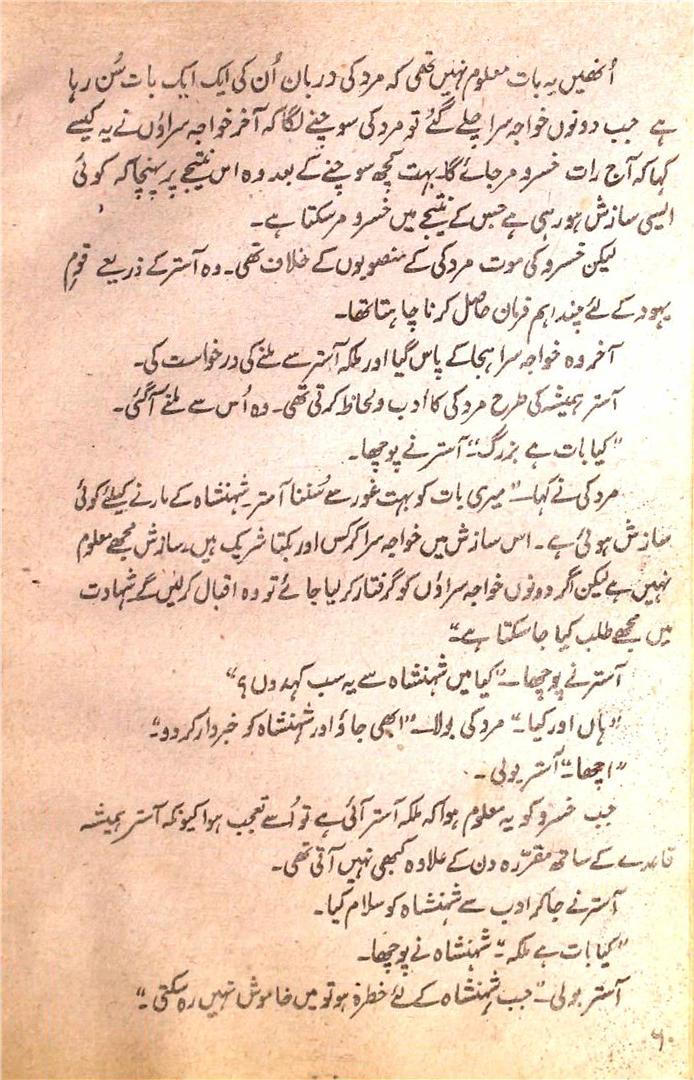 اُنھیں یہ بات معلوم نہیں تھی کہ مردکی دربان اُن کی ایک ایک بات سُن رہا
ہے جب دونوں خواجہ سرا چلے گئے تو مردکی سوچنے لگا کہ آخر خواجہ سراؤں نے یہ کیسے
کہا کہ آج رات خسرو مر جائے گا۔ بہت کچھ سوچنے کے بعد وہ اس نتیجے پر پہنچا کہ کوئی
ایسی سازش ہو رہی ہے جس کے نتیجے میں خسرو مر سکتا ہے۔
لیکن خسرو کی موت مردکی کے منصوبوں کے خلاف تھی۔ وہ آستر کے ذریعے قومِ
یہود کے لئے چند اہم فرمان حاصل کرنا چاہتا تھا۔
آخر وہ خواجہ سرا ہیجا کے پاس گیا اور ملکہ آستر سے ملنے کی درخواست کی۔
آستر ہمیشہ کی طرح مردکی کا ادب و لحاظ کرتی تھی۔ وہ اُس سے ملنے آگئی۔
”کیا بات ہے بزرگ“ آستر نے پوچھا۔
مردکی نے کہا۔ ”میری بات کو بہت غور سے سُننا آستر۔ شہنشاہ کے مارنے کیلئے کوئی
سازش ہوئی ہے۔ اس سازش میں خواجہ سرا کرکس اور بکتا شریک ہیں۔ سازش مجھے معلوم
نہیں ہے لیکن اگر دونوں خواجہ سراؤں کو گرفتار کر لیا جائے تو وہ اقبال کرلیں گے شہادت
میں مجھے طلب کیا جا سکتا ہے“
آستر نے پوچھا۔ ”کیا میں شہنشاہ سے یہ سب کہہ دوں؟“
”ہاں اور کیا۔“ مردکی بولا۔ ”ابھی جاؤ اور شہنشاہ کو خبردار کر دو۔“
”اچھا۔“ آستر بولی۔
جب خسرو کو یہ معلوم ہوا کہ ملکہ آستر آئی ہے تو اُسے تعجب ہوا کیونکہ آستر ہمیشہ
قاعدے کے ساتھ مقررہ دن کے علاوہ کبھی نہیں آتی تھی۔
آستر نے جا کر ادب سے شہنشاہ کو سلام کیا۔
”کیا بات ہے ملکہ“ شہنشاہ نے پوچھا۔
آستر بولی۔ ”جب شہنشاہ کے لئے خطرہ ہو تو میں خاموش نہیں رہ سکتی۔“
۶۰